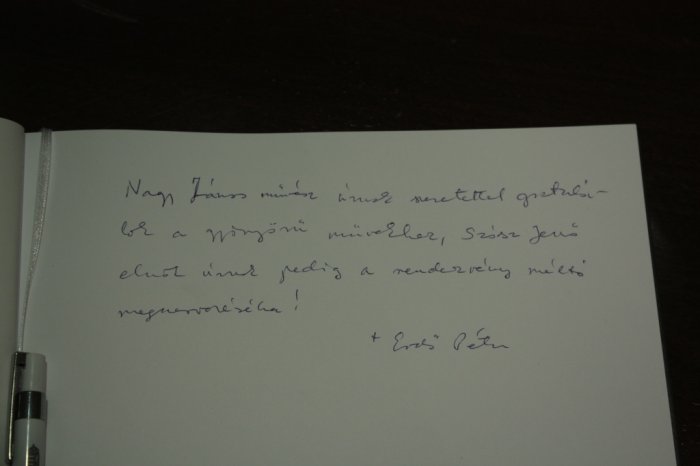 Nagy János művész úrnak szeretettel gratulá-
lok a gyönyörű művekhez, Szász Jenő
elnök úrnak pedig a rendezvény méltó
megszervezéséhez!
+ Erdő Péter